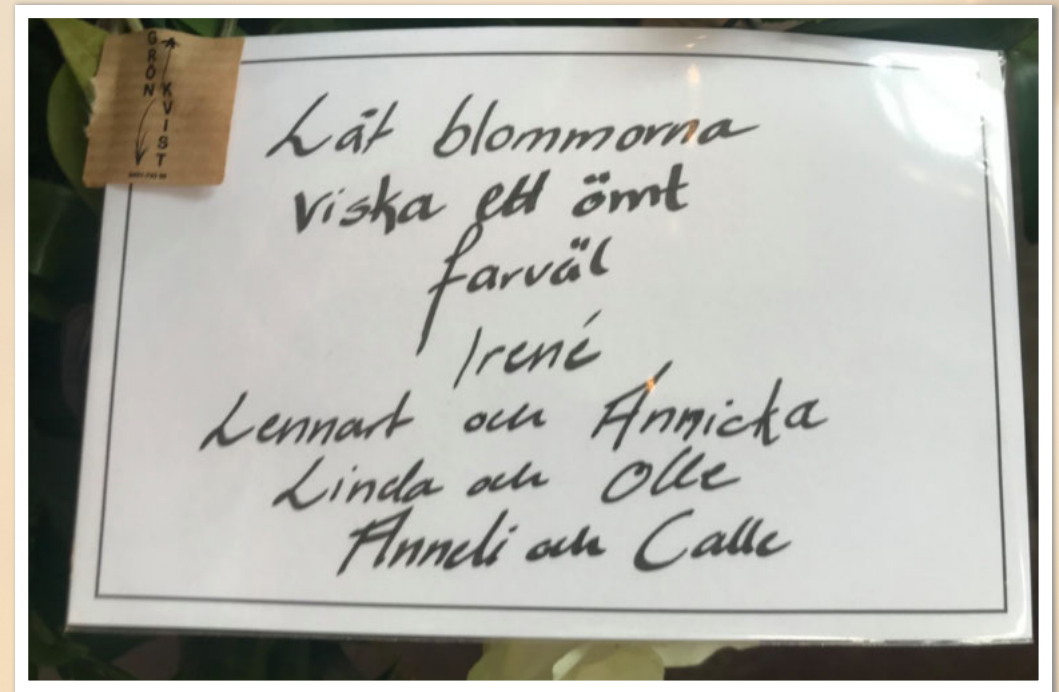 GRÖN
KVIST
Låt blommorna
viska ett ömt
farväl
Irené
Lennart och Annicka
Linda och Olle
Anneli och Calle